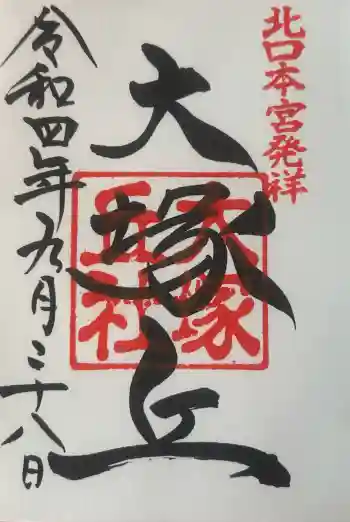 北口本宮発祥
大塚丘
大塚
丘社
令和四年九月二十八日